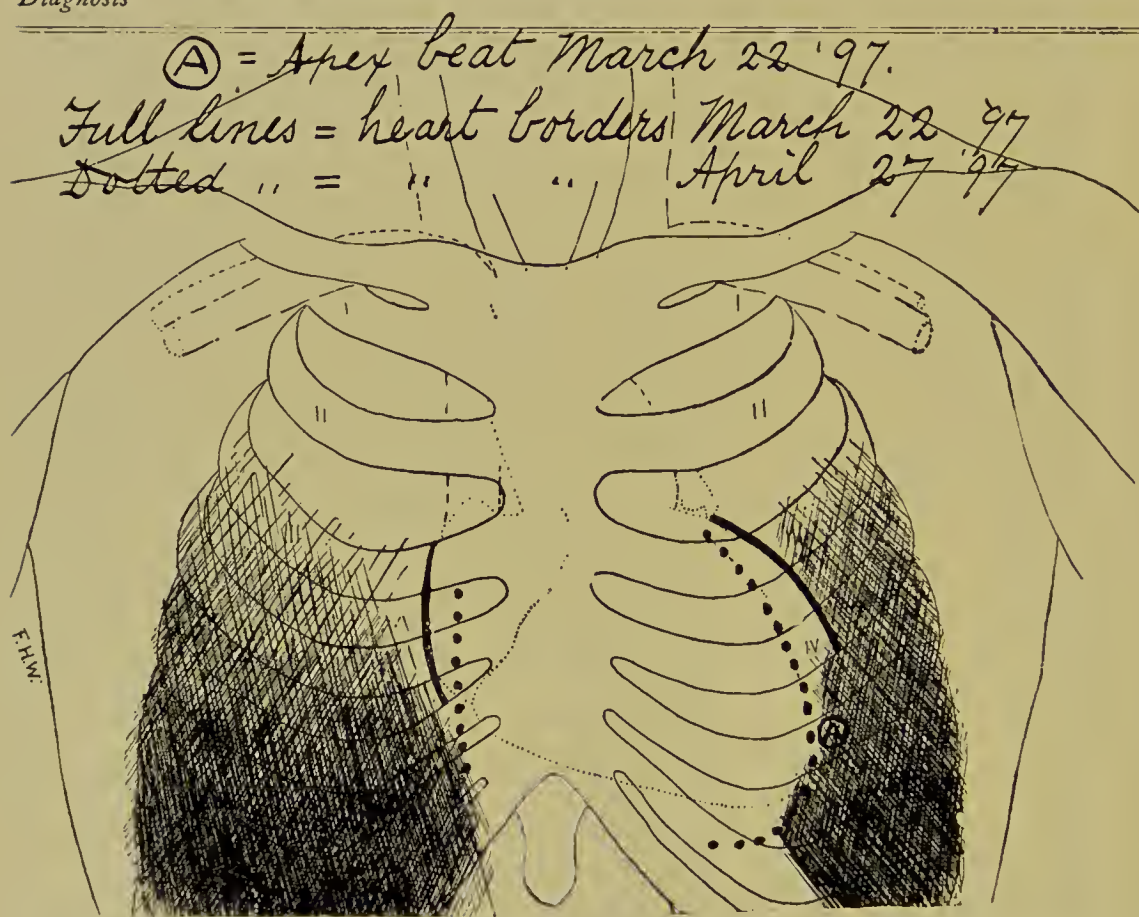 Diagnosis
Ⓐ = Apex beat March 22 '97.
Full lines = heart borders March 22 '97
Dotted " = " " April 27 '97
I I
II II
IV
A
F.H.W.